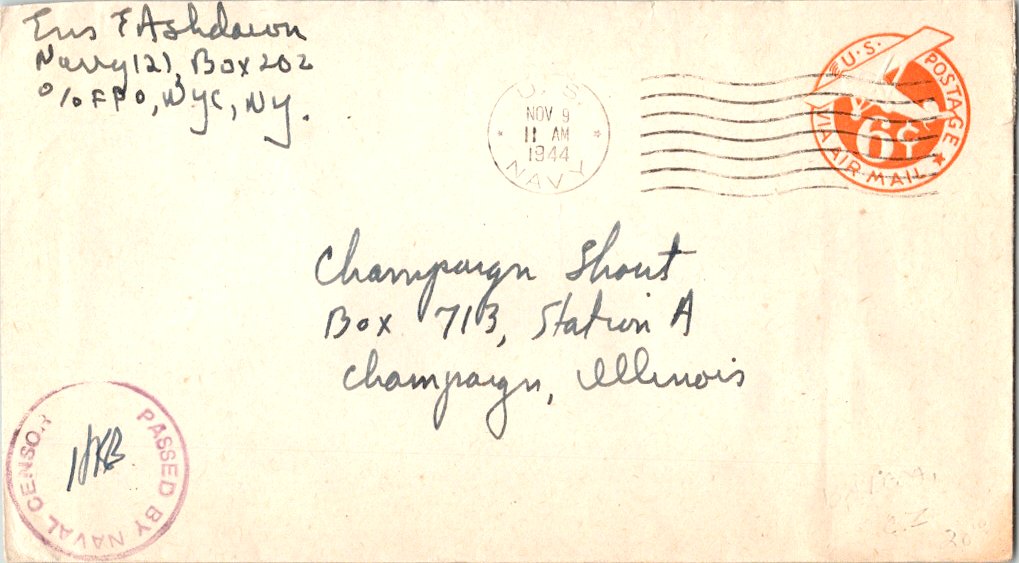 F Ashdown
Navy 121, Box 202
c/o FPO, NYC, NY.
U.S.
NOV 9
11 AM
1944
NAVY
U.S. POSTAGE
6¢
VIA AIR MAIL
Champaign Shout
Box 713, Station A
Champaign, Illinois
PASSED BY NAVAL CENSOR